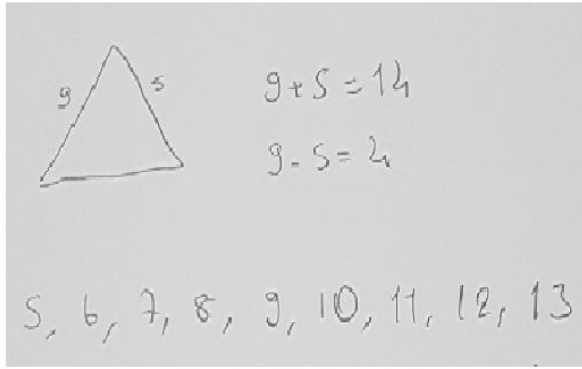 9 5
9+5=14
9-5=4
5, 6, 7, 8, 9, 10, 11, 12, 13